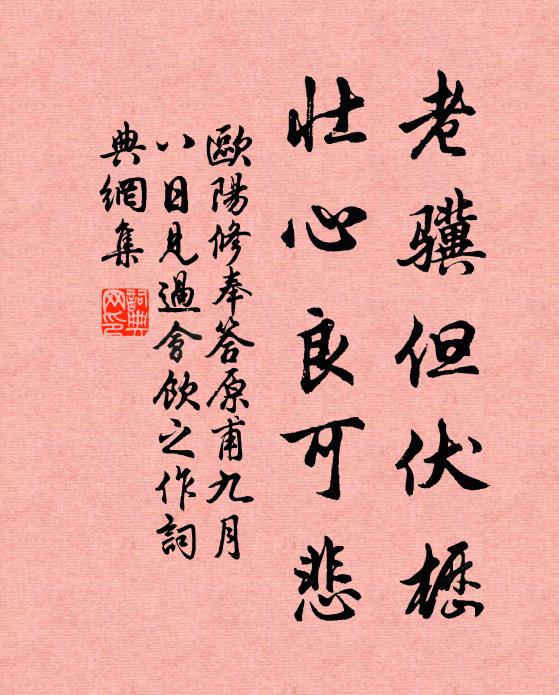 老驥但伏櫪
壯心良可悲
歐陽修奉答原甫九月
八日見過會飲之作詞
典網集
詞典网印